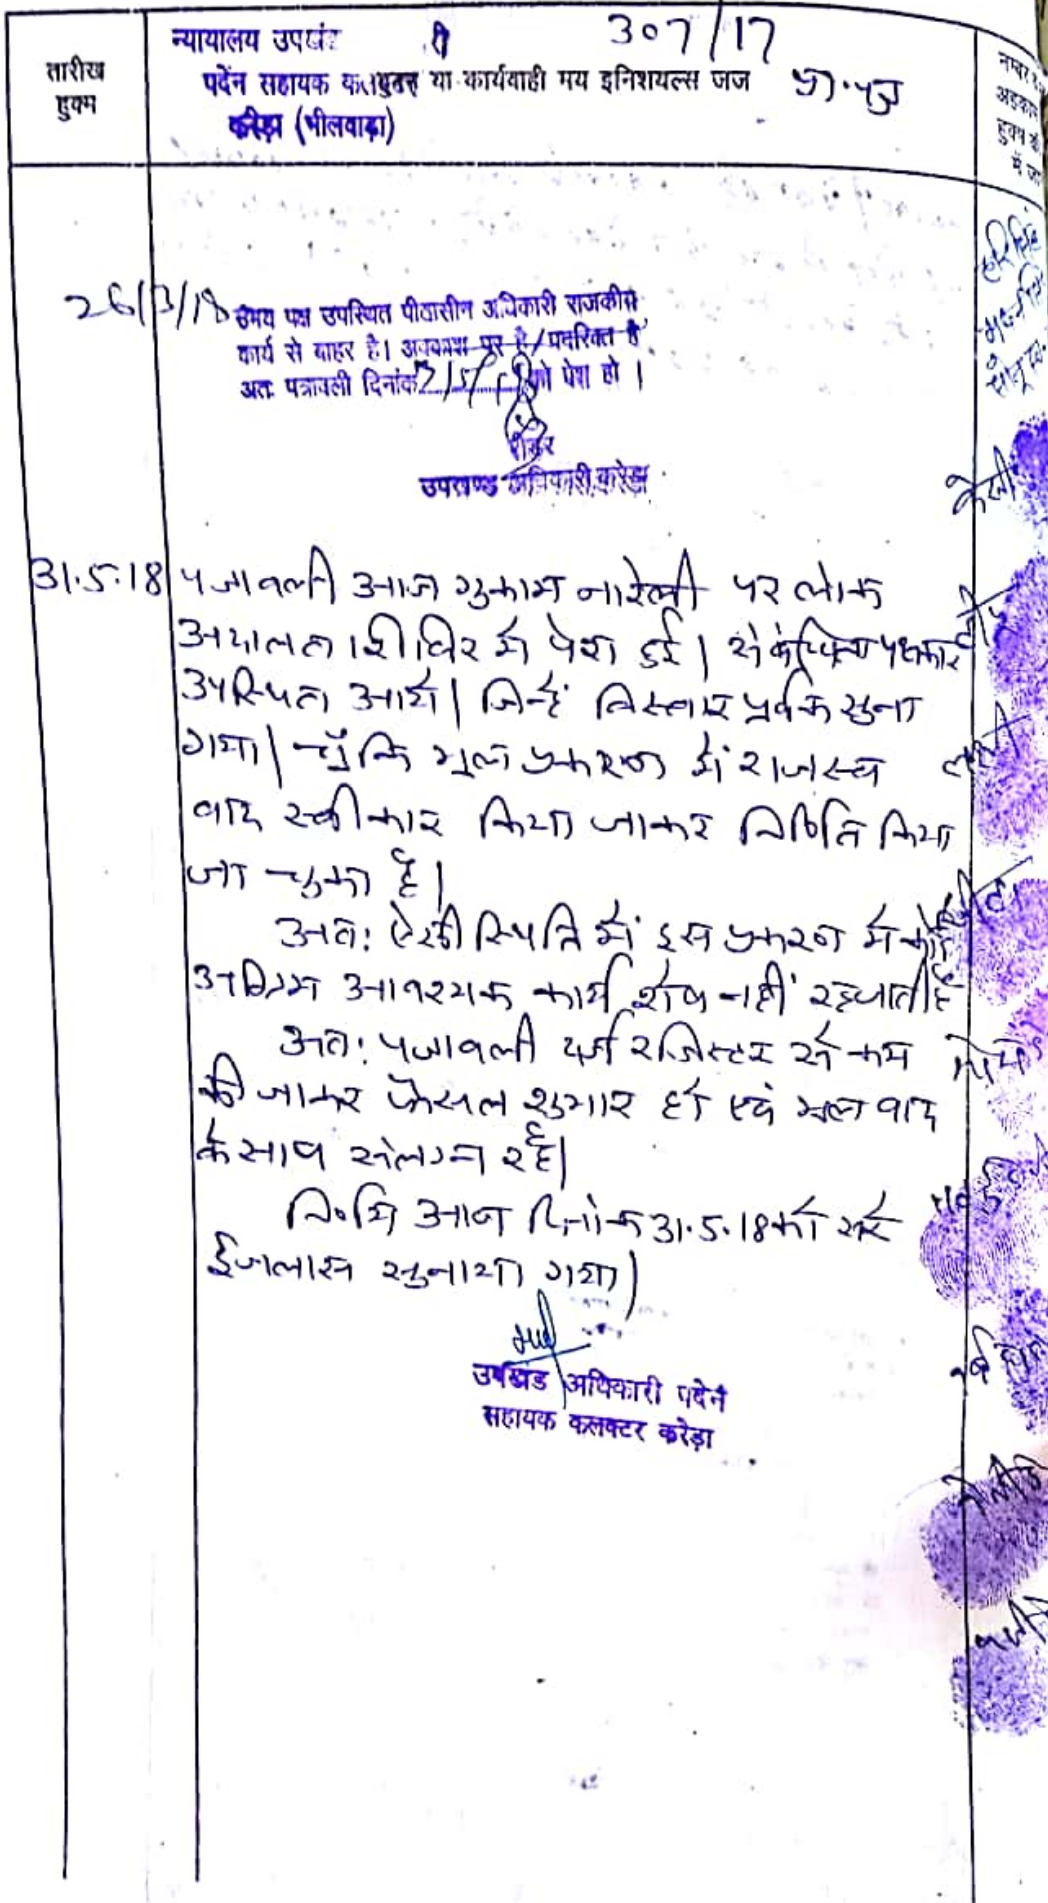 307/17
न्यायालय उपखंड
तारीख हुक्म
पदेन सहायक या कार्यवाही मय इनिशयल्स जज
करेड़ा (भीलवाड़ा)
प्रा.पत्र
नम्बर
हुक्म
26/3/18 उभय पक्ष उपस्थित पीठासीन अधिकारी राजकीय
कार्य से बाहर है। अवकाश पर है/पदरिक्त है
अतः पत्रावली दिनांक को पेश हो।
रीडर
उपखण्ड अधिकारी, करेड़ा
31.5.18 पत्रावली आज मुकाम नारेली पर लोक
अदालत शिविर में पेश हुई। संबंधित पक्षकार
उपस्थित आये। जिन्हें विस्तार पूर्वक सुना
गया। चूँकि मूल प्रकरण में राजस्व
वाद स्वीकार किया जाकर निर्णित किया
जा चुका है।
अतः ऐसी स्थिति में इस प्रकरण में कोई
अग्रिम आवश्यक कार्य शेष नहीं रह जाती है
अतः पत्रावली दर्ज रजिस्टर से कम
की जाकर फैसल शुमार हो एवं मूल वाद
के साथ संलग्न रहे।
निर्णय आज दिनांक 31.5.18 को सरे
ईजलास सुनाया गया।
उपखंड अधिकारी पदेन
सहायक कलक्टर करेड़ा